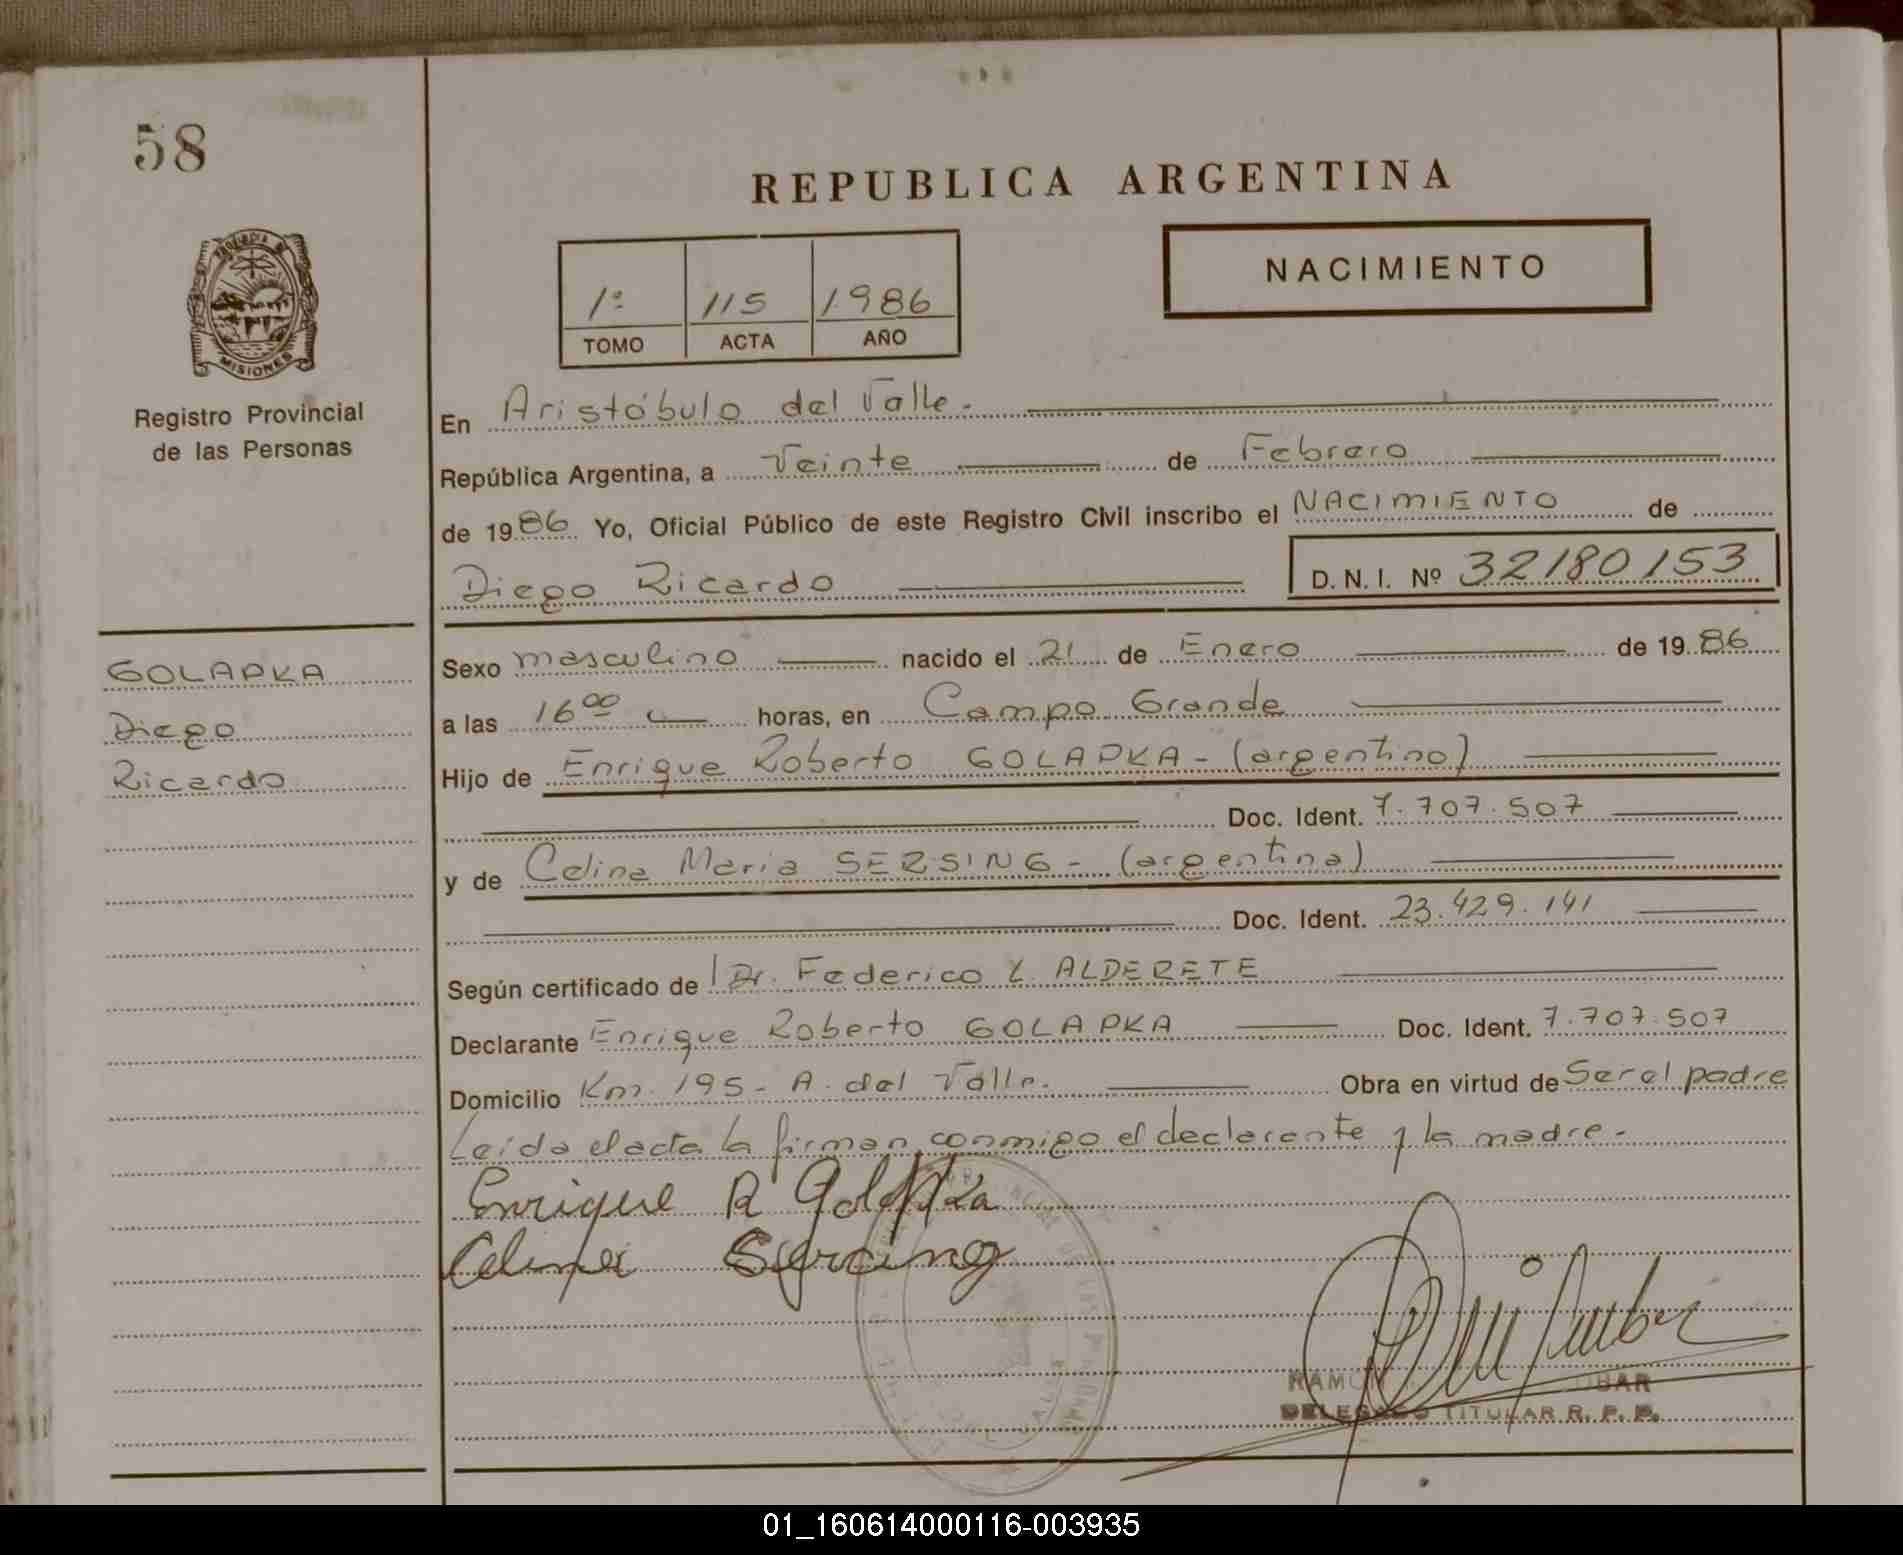 58
REPUBLICA ARGENTINA
PROVINCIA DE
MISIONES
Registro Provincial
de las Personas
1º 115 1986
TOMO ACTA AÑO
NACIMIENTO
En Aristóbulo del Valle.
República Argentina, a Veinte de Febrero
de 1986 Yo, Oficial Público de este Registro Civil inscribo el NACIMIENTO de
Diego Ricardo D. N. I. Nº 32180153
GOLAPKA
Diego
Ricardo
Sexo masculino nacido el 21 de Enero de 1986
a las 16 00 horas, en Campo Grande
Hijo de Enrique Roberto GOLAPKA - (argentino)
Doc. Ident. 7.707.507
y de Celina Maria SERSING - (argentina)
Doc. Ident. 23.429.141
Según certificado de Dr. Federico L. ALDERETE
Declarante Enrique Roberto GOLAPKA Doc. Ident. 7.707.507
Domicilio Km. 195 - A. del Valle. Obra en virtud de Ser el padre
Leída el acta la firman conmigo el declarante y la madre.-
Enrique R Golapka
Celina Sercing
RAMON
DELEGADO TITULAR R. P. P.
01_160614000116-003935